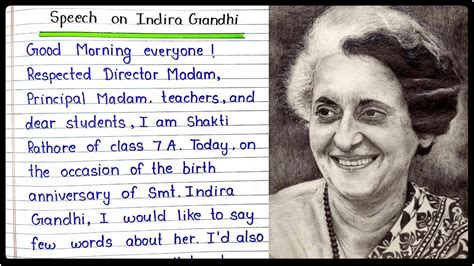 Speech on Indira Gandhi
Good Morning everyone !
Respected Director Modam,
Principal Madam, teachers, and
dear students, I am Shakti
Rathore of class 7 A. Today, on
the occasion of the birth
anniversary of Smt. Indira
Gandhi, I would like to say
few words about her. I'd also